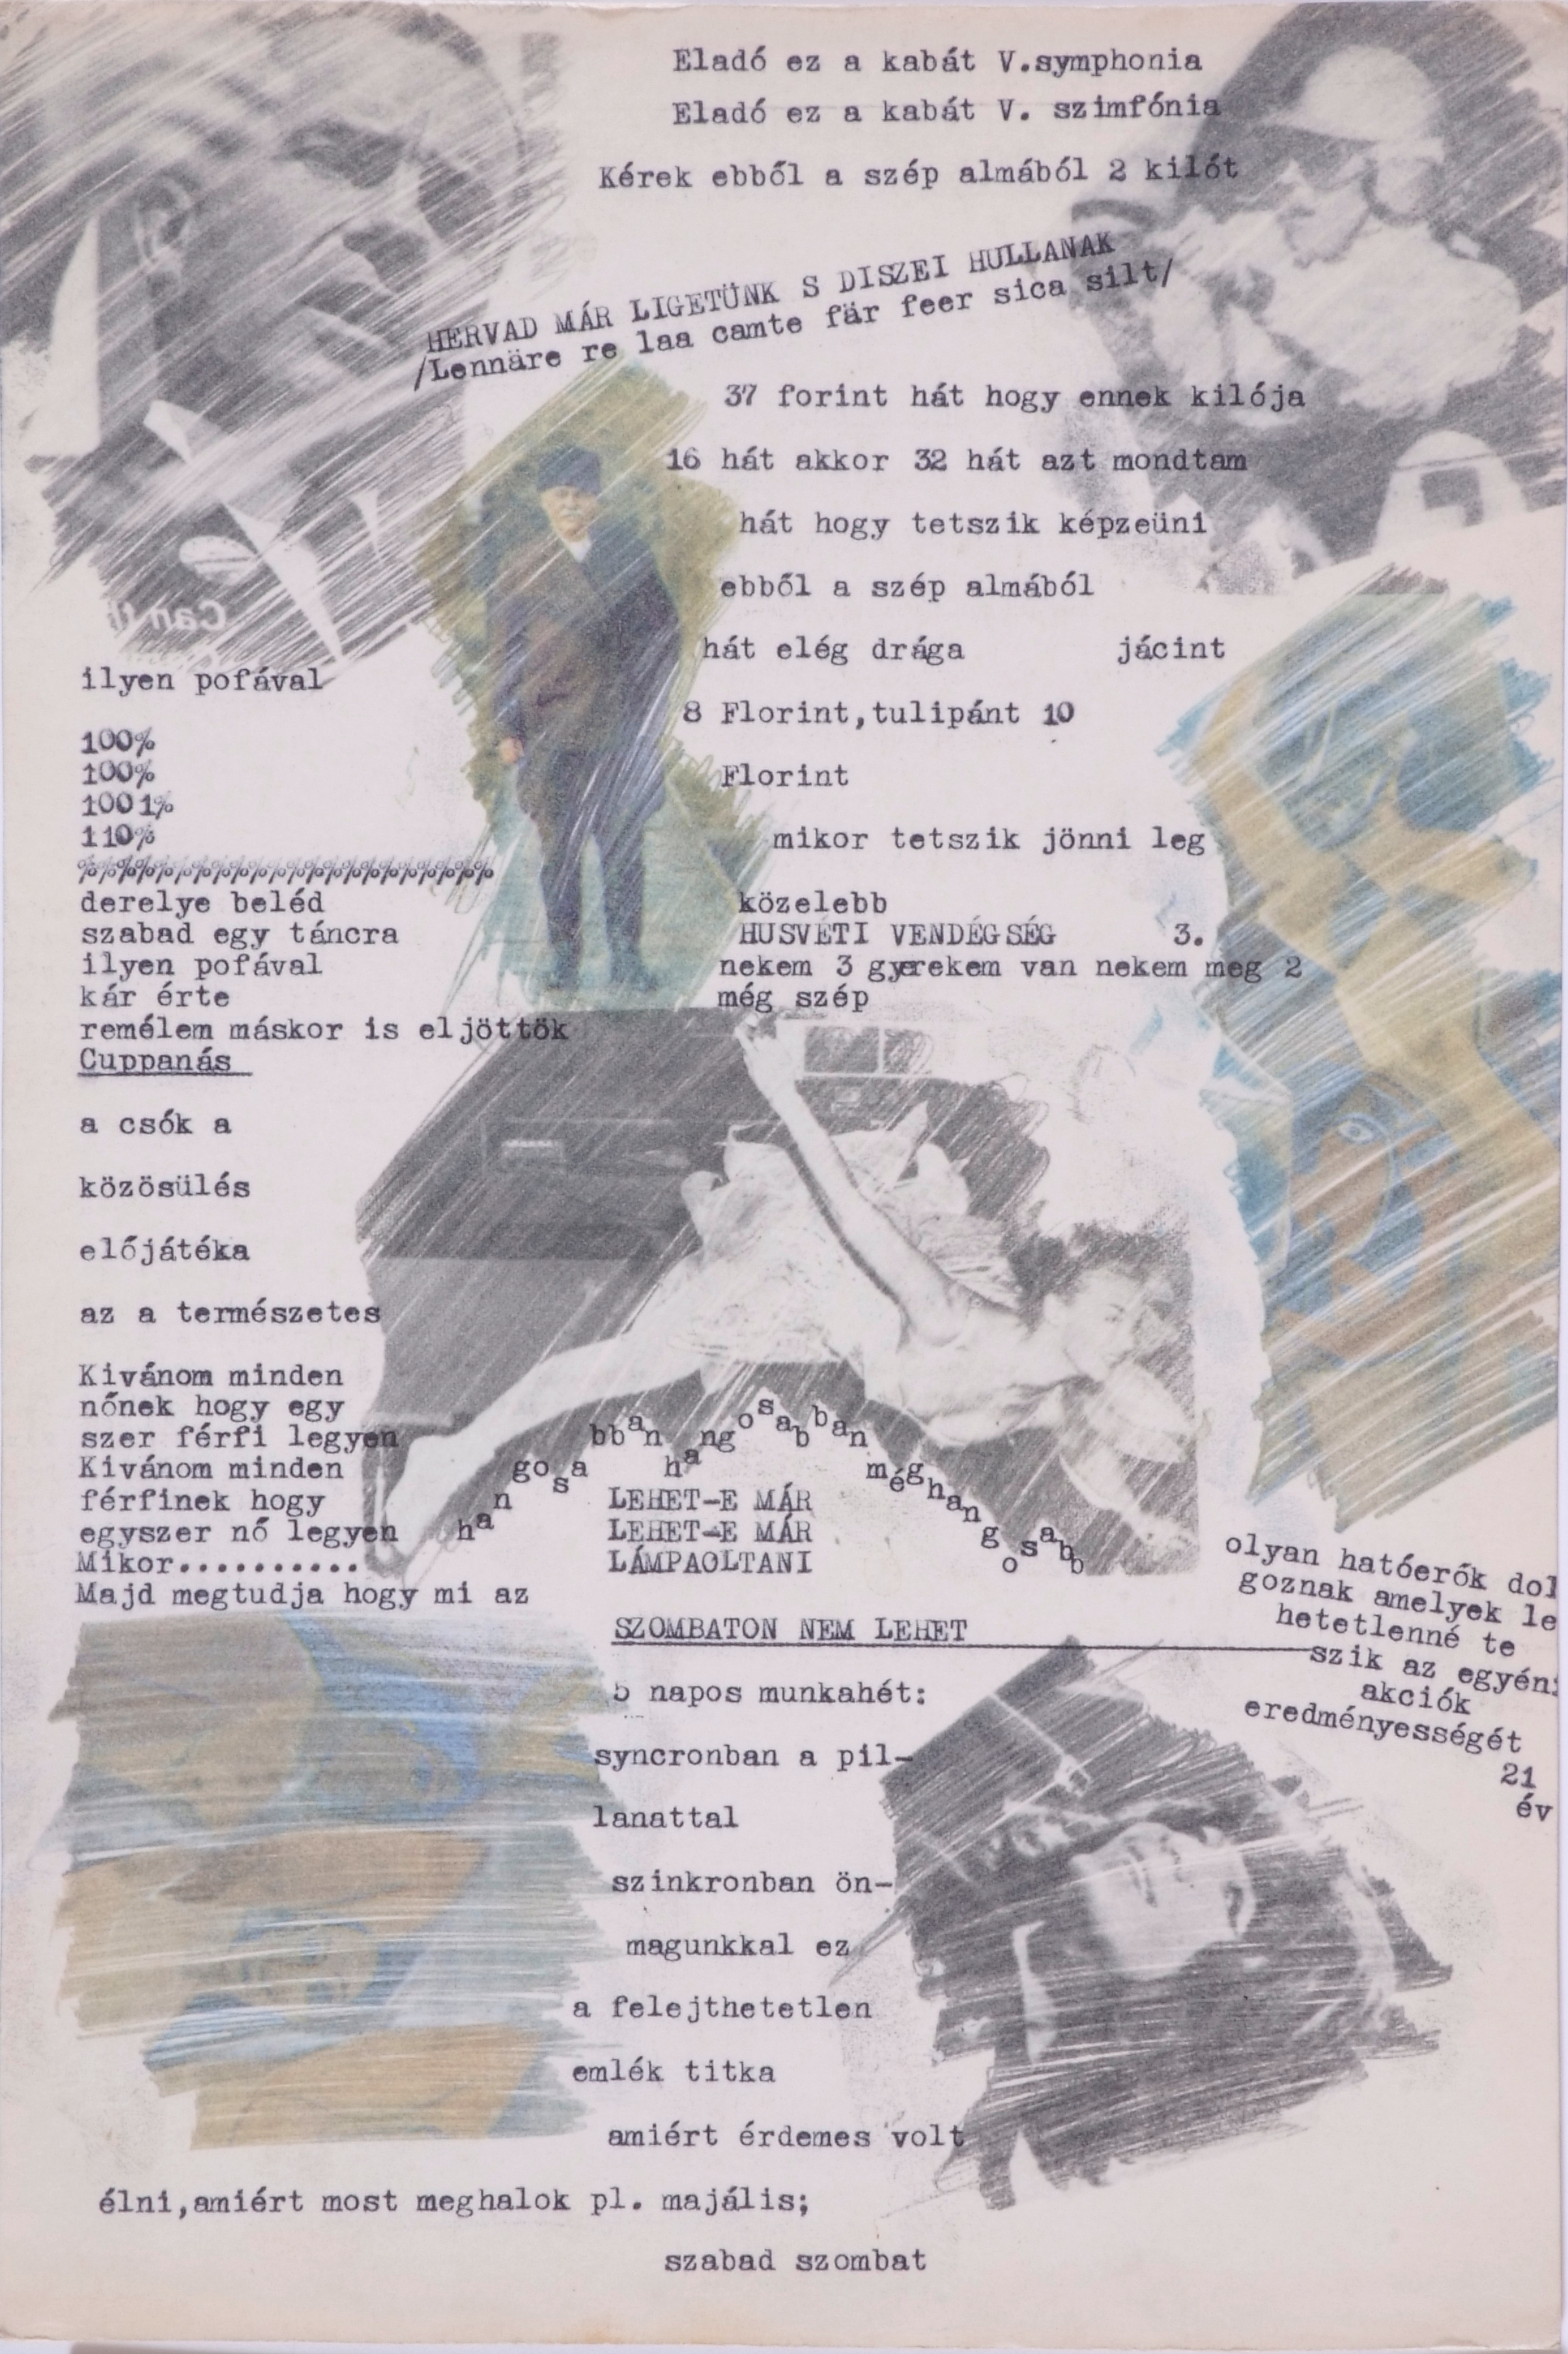 Eladó ez a kabát V.symphonia
Eladó ez a kabát V. szimfónia
Kérek ebből a szép almából 2 kilót
HERVAD MÁR LIGETÜNK S DISZEI HULLANAK
/Lennäre re laa camte fär feer sica silt/
37 forint hát hogy ennek kilója
16 hát akkor 32 hát azt mondtam
hát hogy tetszik képzeüni
ebből a szép almából
hát elég drága jácint
8 Florint,tulipánt 10
Florint
mikor tetszik jönni leg
közelebb
HUSVÉTI VENDÉGSÉG 3.
nekem 3 gyerekem van nekem meg 2
még szép
ilyen pofával
100%
100%
1001%
110%
%%%%%%%%%%%%%%%%%%%%%%
derelye beléd
szabad egy táncra
ilyen pofával
kár érte
remélem máskor is eljöttök
Cuppanás
a csók a
közösülés
előjátéka
az a természetes
Kivánom minden
nőnek hogy egy
szer férfi legyen
Kivánom minden
férfinek hogy
egyszer nő legyen
Mikor..........
Majd megtudja hogy mi az
hangosabban hangosabban méghangosabb
LEHET-E MÁR
LEHET-E MÁR
LÁMPAOLTANI
SZOMBATON NEM LEHET
5 napos munkahét:
syncronban a pil-
lanattal
szinkronban ön-
magunkkal ez
a felejthetetlen
emlék titka
amiért érdemes volt
élni,amiért most meghalok pl. majális;
szabad szombat
olyan hatóerők dol
goznak amelyek le
hetetlenné te
szik az egyéni
akciók
eredményességét
21
év